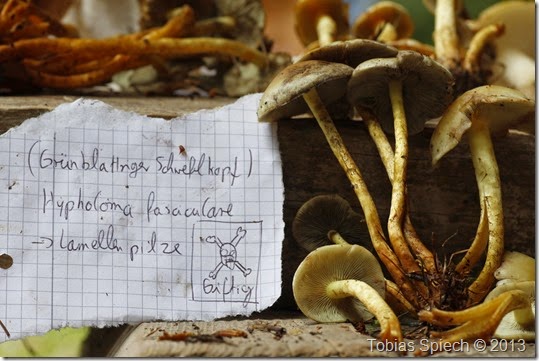 (Grünblättriger Schwefelkopf)
Hypholoma fasciculare
→ Lamellenpilze
Giftig
Tobias Spiech © 2013